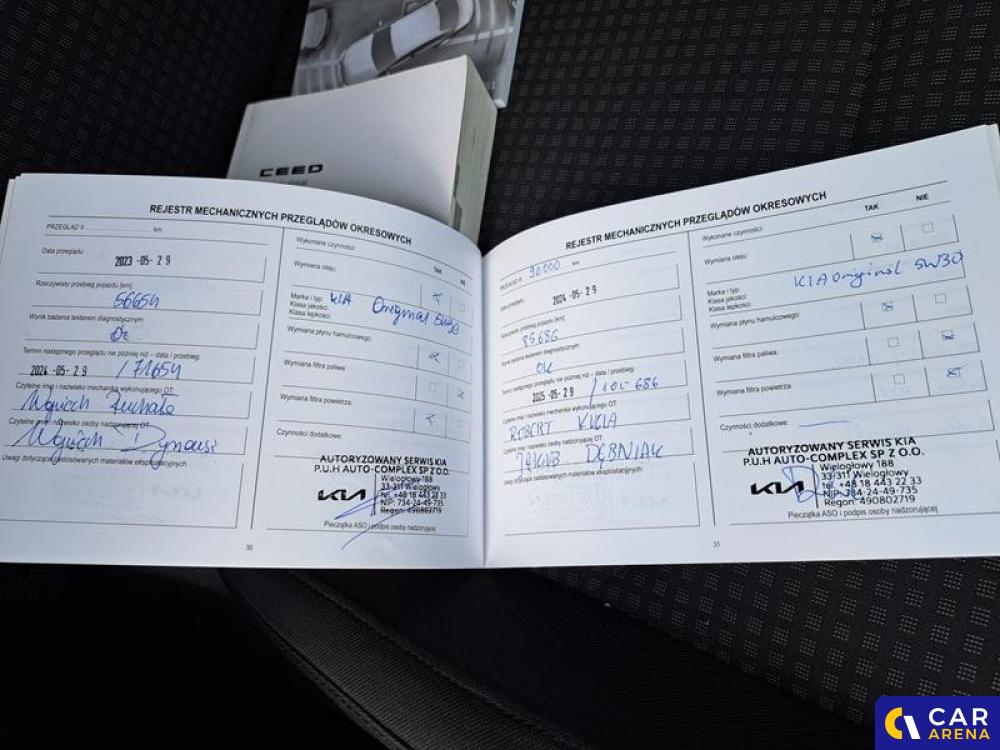 CEED
REJESTR MECHANICZNYCH PRZEGLĄDÓW OKRESOWYCH
PRZEGLĄD # km
Data przeglądu:
2023 -05- 29
Rzeczywisty przebieg pojazdu [km]:
56654
Wynik badania testerem diagnostycznym:
Termin następnego przeglądu nie później niż – data / przebieg:
2024 -05- 29 / 71654
Czytelne imię i nazwisko mechanika wykonującego OT:
Wojciech
Czytelne imię i nazwisko osoby nadzorującej OT:
Wojciech
Uwagi dotyczące zastosowanych materiałów eksploatacyjnych:
Wykonane czynności: TAK NIE
Wymiana oleju:
Marka i typ: KIA Original 5W30
Klasa jakości:
Klasa lepkości:
Wymiana płynu hamulcowego:
Wymiana filtra paliwa:
Wymiana filtra powietrza:
Czynności dodatkowe:
AUTORYZOWANY SERWIS KIA
P.U.H AUTO-COMPLEX SP Z O.O.
KIA
Wielogłowy 188
33-311 Wielogłowy
tel. +48 18 443 22 33
NIP: 734-24-49-735
Regon: 490802719
Pieczątka ASO i podpis osoby nadzorującej
30
REJESTR MECHANICZNYCH PRZEGLĄDÓW OKRESOWYCH
PRZEGLĄD # 90.000 km
Data przeglądu:
2024 -05- 29
Rzeczywisty przebieg pojazdu [km]:
85686
Wynik badania testerem diagnostycznym:
ok
Termin następnego przeglądu nie później niż – data / przebieg:
2025 -05- 29 / 100 686
Czytelne imię i nazwisko mechanika wykonującego OT:
ROBERT KICIA
Czytelne imię i nazwisko osoby nadzorującej OT:
JAKUB DĘBNIAK
Uwagi dotyczące zastosowanych materiałów eksploatacyjnych:
Wykonane czynności: TAK NIE
Wymiana oleju:
Marka i typ: KIA Original 5W30
Klasa jakości:
Klasa lepkości:
Wymiana płynu hamulcowego:
Wymiana filtra paliwa:
Wymiana filtra powietrza:
Czynności dodatkowe:
AUTORYZOWANY SERWIS KIA
P.U.H AUTO-COMPLEX SP Z O.O.
KIA
Wielogłowy 188
33-311 Wielogłowy
tel. +48 18 443 22 33
NIP: 734-24-49-735
Regon: 490802719
Pieczątka ASO i podpis osoby nadzorującej
31
CAR
ARENA